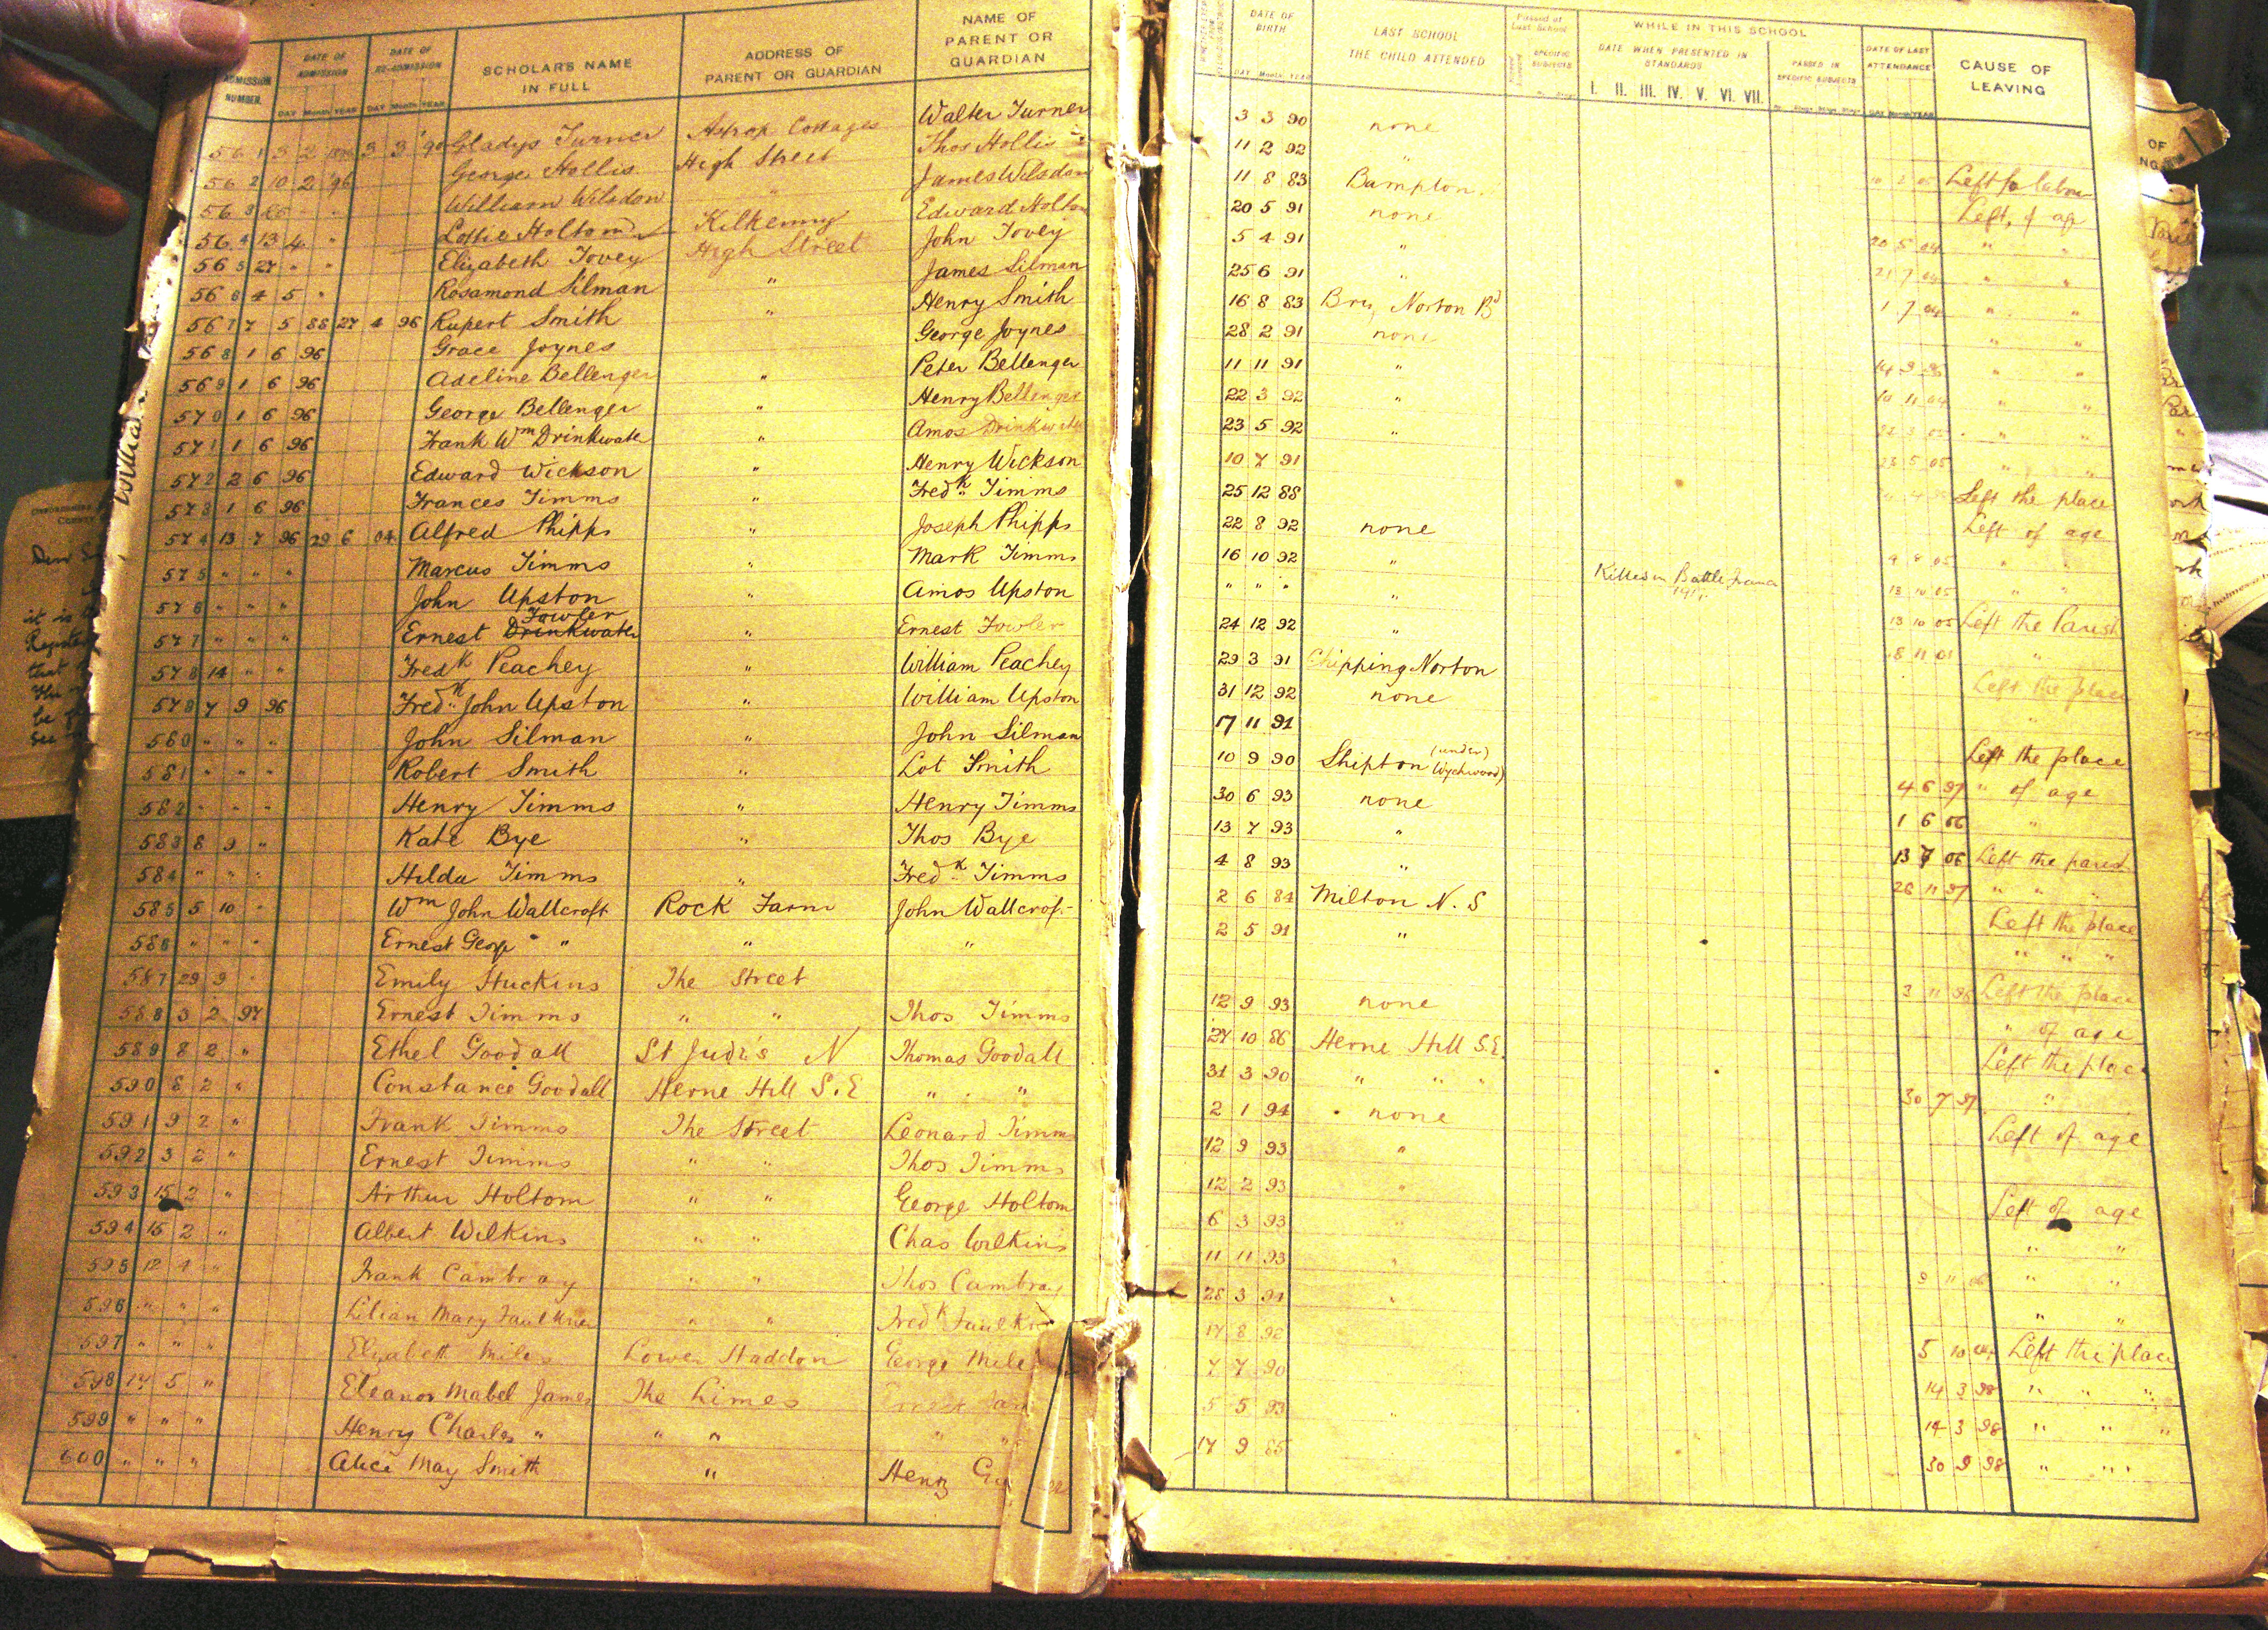 ADMISSION NUMBER. DATE OF ADMISSION DAY Month YEAR DATE OF RE-ADMISSION DAY Month YEAR SCHOLAR'S NAME IN FULL ADDRESS OF PARENT OR GUARDIAN NAME OF PARENT OR GUARDIAN
561 3 2 3 3 Gladys Turner Astrop Cottages Walter Turner
562 10 2 96 George Hollis High Street Thos Hollis
563 William Wilsdon " James Wilsdon
564 13 4 " Lottie Holtom Kilkenny Edward Holtom
565 27 " " Elizabeth Tovey High Street John Tovey
566 4 5 " Rosamond Silman " James Silman
567 7 5 88 27 4 96 Rupert Smith " Henry Smith
568 1 6 96 Grace Joynes George Joynes
569 1 6 96 Adeline Bellenger " Peter Bellenger
570 1 6 96 George Bellenger " Henry Bellenger
571 1 6 96 Frank Wm Drinkwater " Amos Drinkwater
572 2 6 96 Edward Wickson " Henry Wickson
573 1 6 96 Frances Timms " Fredk Timms
574 13 7 96 29 6 04 Alfred Phipps " Joseph Phipps
575 " " " Marcus Timms " Mark Timms
576 " " " John Upston " Amos Upston
577 " " " Ernest Drinkwater Fowler " Ernest Fowler
578 14 " " Fredk Peachey " William Peachey
579 7 9 96 Fredk John Upston " William Upston
580 " " " John Silman " John Silman
581 " " " Robert Smith " Lot Smith
582 " " " Henry Timms " Henry Timms
583 8 9 " Kate Bye " Thos Bye
584 " " " Hilda Timms " Fredk Timms
585 5 10 " Wm John Wallcroft Rock Farm John Wallcroft
586 " " " Ernest George " " "
587 29 9 " Emily Huckins The Street
588 3 2 97 Ernest Timms " " Thos Timms
589 8 2 " Ethel Goodall St Jude's N Thomas Goodall
590 8 2 " Constance Goodall Herne Hill S.E " "
591 9 2 " Frank Timms The Street Leonard Timms
592 3 2 " Ernest Timms " " Thos Timms
593 15 2 " Arthur Holtom " " George Holtom
594 15 2 " Albert Wilkins " " Chas Wilkins
595 12 4 " Frank Cambray " " Thos Cambray
596 " " " Lilian Mary Faulkner " " Fredk Faulkner
597 " " " Elizabeth Miles Lower Haddon George Miles
598 17 5 " Eleanor Mabel James The Limes
599 " " " Henry Charles " " "
600 " " " Alice May Smith " Henry
DATE OF BIRTH DAY Month YEAR LAST SCHOOL THE CHILD ATTENDED Passed at Last School SPECIFIC SUBJECTS WHILE IN THIS SCHOOL DATE WHEN PRESENTED IN STANDARDS I. II. III. IV. V. VI. VII. PASSED IN SPECIFIC SUBJECTS DATE OF LAST ATTENDANCE DAY Month YEAR CAUSE OF LEAVING
3 3 90 none
11 2 92 "
11 8 83 Bampton. Left for labour
20 5 91 none Left, of age
5 4 91 " 20 5 04 " "
25 6 91 " 21 7 04 " "
16 8 83 Brize Norton Bd 1 7 04 " "
28 2 91 none " "
11 11 91 " " "
22 3 92 " 10 11 04 " "
23 5 92 " " "
10 7 91 23 5 05 " "
25 12 88 Left the place
22 8 92 none Left of age
16 10 92 " " "
" " " " Killed in Battle France 13 10 05 " "
24 12 92 " 13 10 05 Left the Parish
29 3 91 Chipping Norton 8 11 01 "
31 12 92 none Left the place
17 11 91 "
10 9 90 Shipton (under Wychwood) Left the place
30 6 93 none 4 6 97 " of age
13 7 93 " 1 6 06 "
4 8 93 " 13 7 06 Left the parish
2 6 84 Milton N. S 26 11 97 " " "
2 5 91 " Left the place
" " "
12 9 93 none 3 11 96 Left the place
27 10 86 Herne Hill S.E. " of age
31 3 90 " " " Left the place
2 1 94 none 30 7 97 "
12 9 93 " Left of age
12 2 93 "
6 3 93 " Left of age
11 11 93 " " "
28 3 91 " " "
17 8 92 " "
7 7 90 5 10 Left the place
5 5 93 14 3 98 " " "
17 9 85 14 3 98 " " "
30 9 98 " "